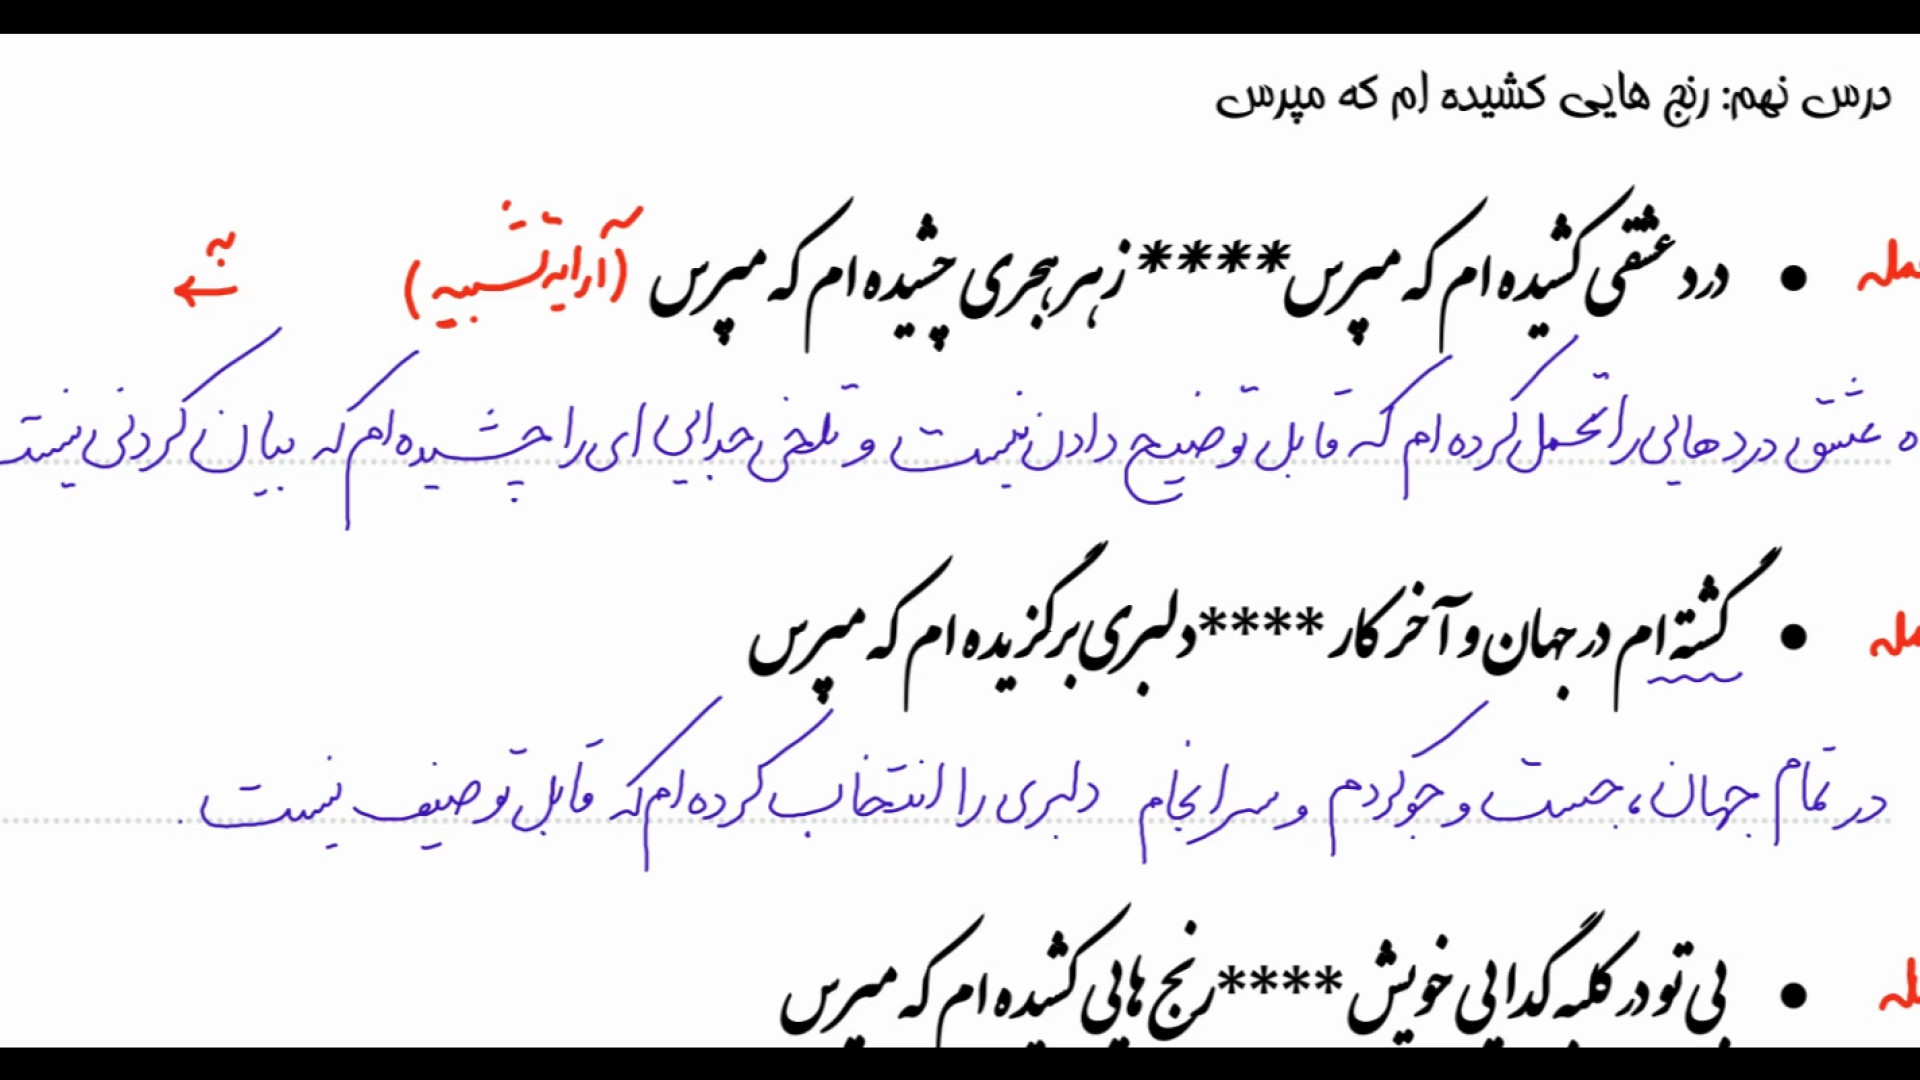 درس نهم: رنج هایی کشیده ام که مپرس
درد عشقی کشیده ام که مپرس**** زهر هجری چشیده ام که مپرس (آرایه تشبیه)
ه عشق درد هایی را تحمل کرده ام که قابل توضیح دادن نیست و تلخی جدایی ای را چشیده ام که بیان کردنی نیست
گشته ام در جهان و آخر کار ****دلبری برگزیده ام که مپرس
در تمام جهان، جست و جو کردم و سرانجام دلبری را انتخاب کرده ام که قابل توصیف نیست.
بی تو در کلبه گدایی خویش ****رنج هایی کشیده ام که مپرس